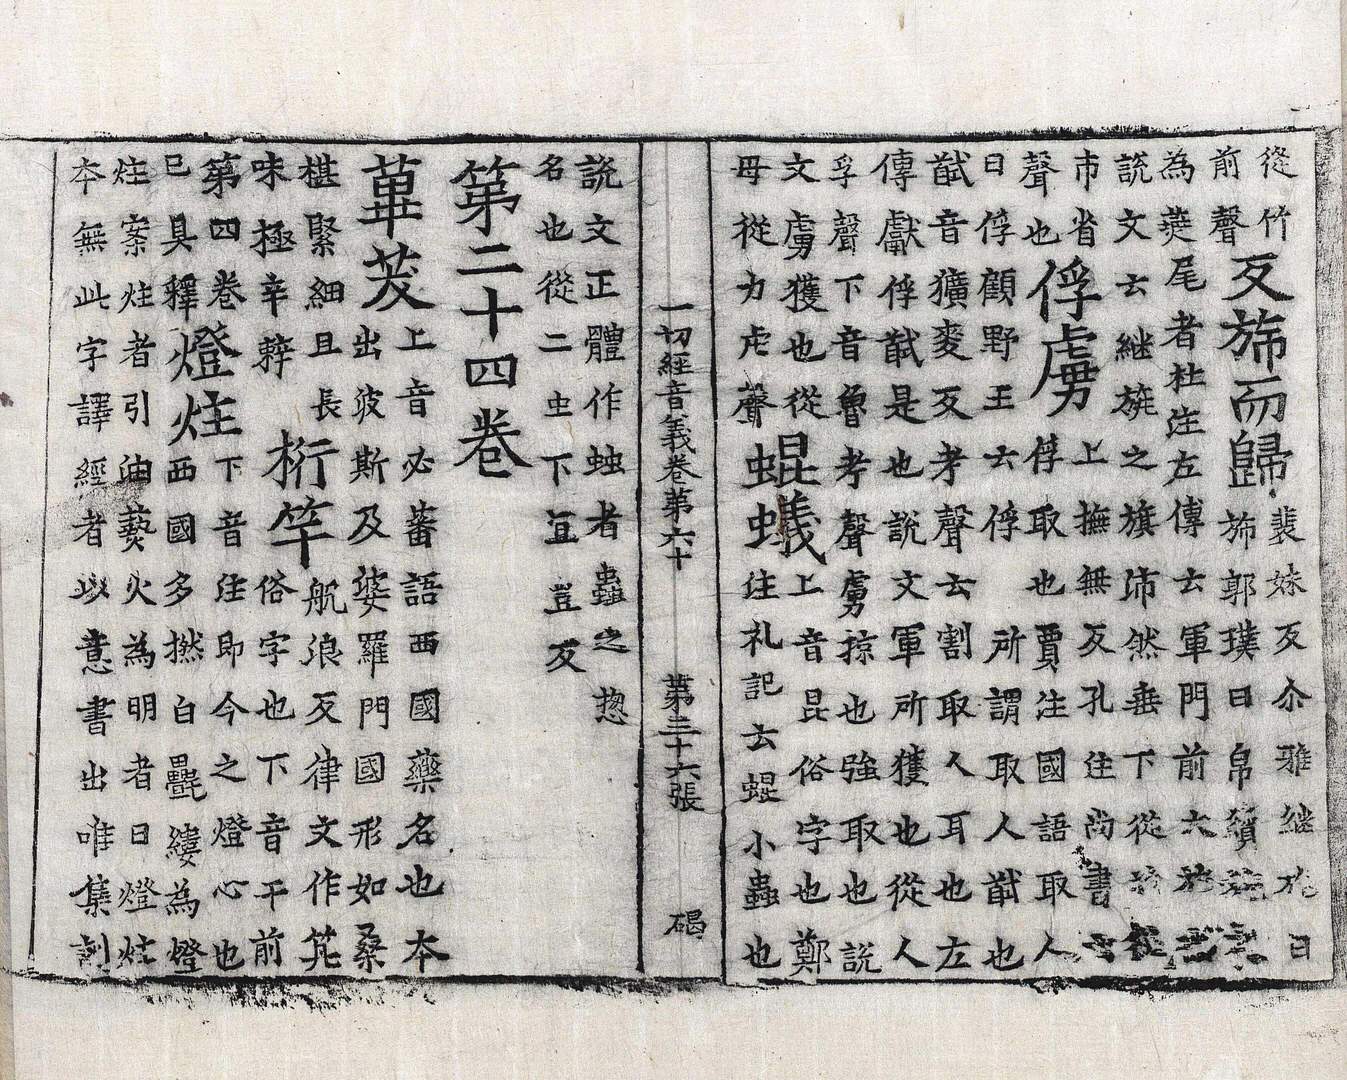 從竹
前聲
反斾而歸
裴妹反尒雅継旐曰
斾郭璞曰帛續旐
為燕尾者杜注左傳云軍門前大
說文云継旐之旗沛然垂下從
市省
聲也
俘虜
上撫無反孔注尚書
俘取也賈注國語取人
曰俘顧野王云俘所謂取人馘也
馘音獷麥反考聲云割取人耳也左
傳獻俘馘是也說文軍所獲也從人
孚聲下音魯考聲虜掠也強取也說
文虜獲也從
毋從力虍聲
蜫蟻
上音昆俗字也鄭
注礼記云蜫小蟲也
一切經音義卷第六十 第三十六張 碣
說文正體作䖵者蟲之揔
名也從二虫下冝豈反
第二十四卷
蓽茇
上音必蕃語西國藥名也本
出波斯及婆羅門國形如桑
椹緊細且長
味極辛辢
桁竿
航浪反律文作笐
俗字也下音干前
第四卷
已具釋
燈炷
下音注即今之燈心也
西國多撚白㲲縷為燈
炷案炷者引油爇火為明者曰燈炷
本無此字譯經者以意書出唯集訓